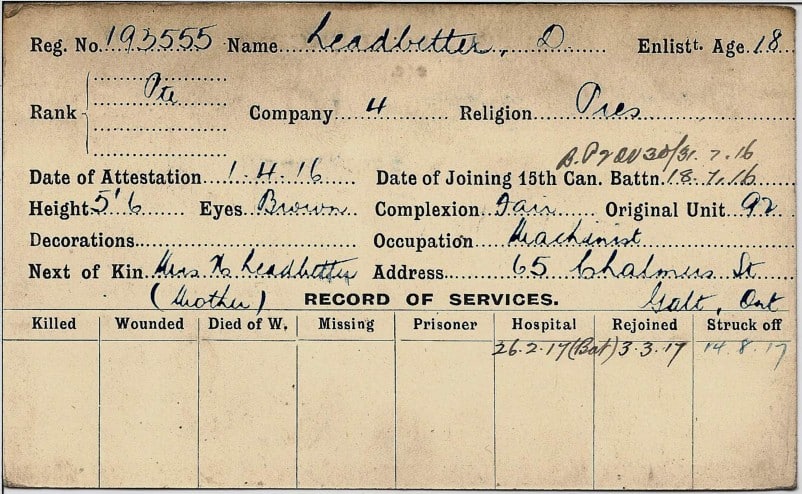 Reg. No. 193555 Name Leadbetter, D. Enlistt. Age 18
Pte
Rank Company 4 Religion Pres
30/31.7.16
Date of Attestation 1.4.16 Date of Joining 15th Can. Battn. 18.7.16
Height 5'6 Eyes Brown Complexion Fair Original Unit 92
Decorations Occupation Machinist
Next of Kin Mrs Leadbetter Address 65 Chalmers St
(Mother) RECORD OF SERVICES. Galt, Ont
Killed Wounded Died of W. Missing Prisoner Hospital Rejoined Struck off
26.2.17 (Bat) 3.3.17 14.8.17